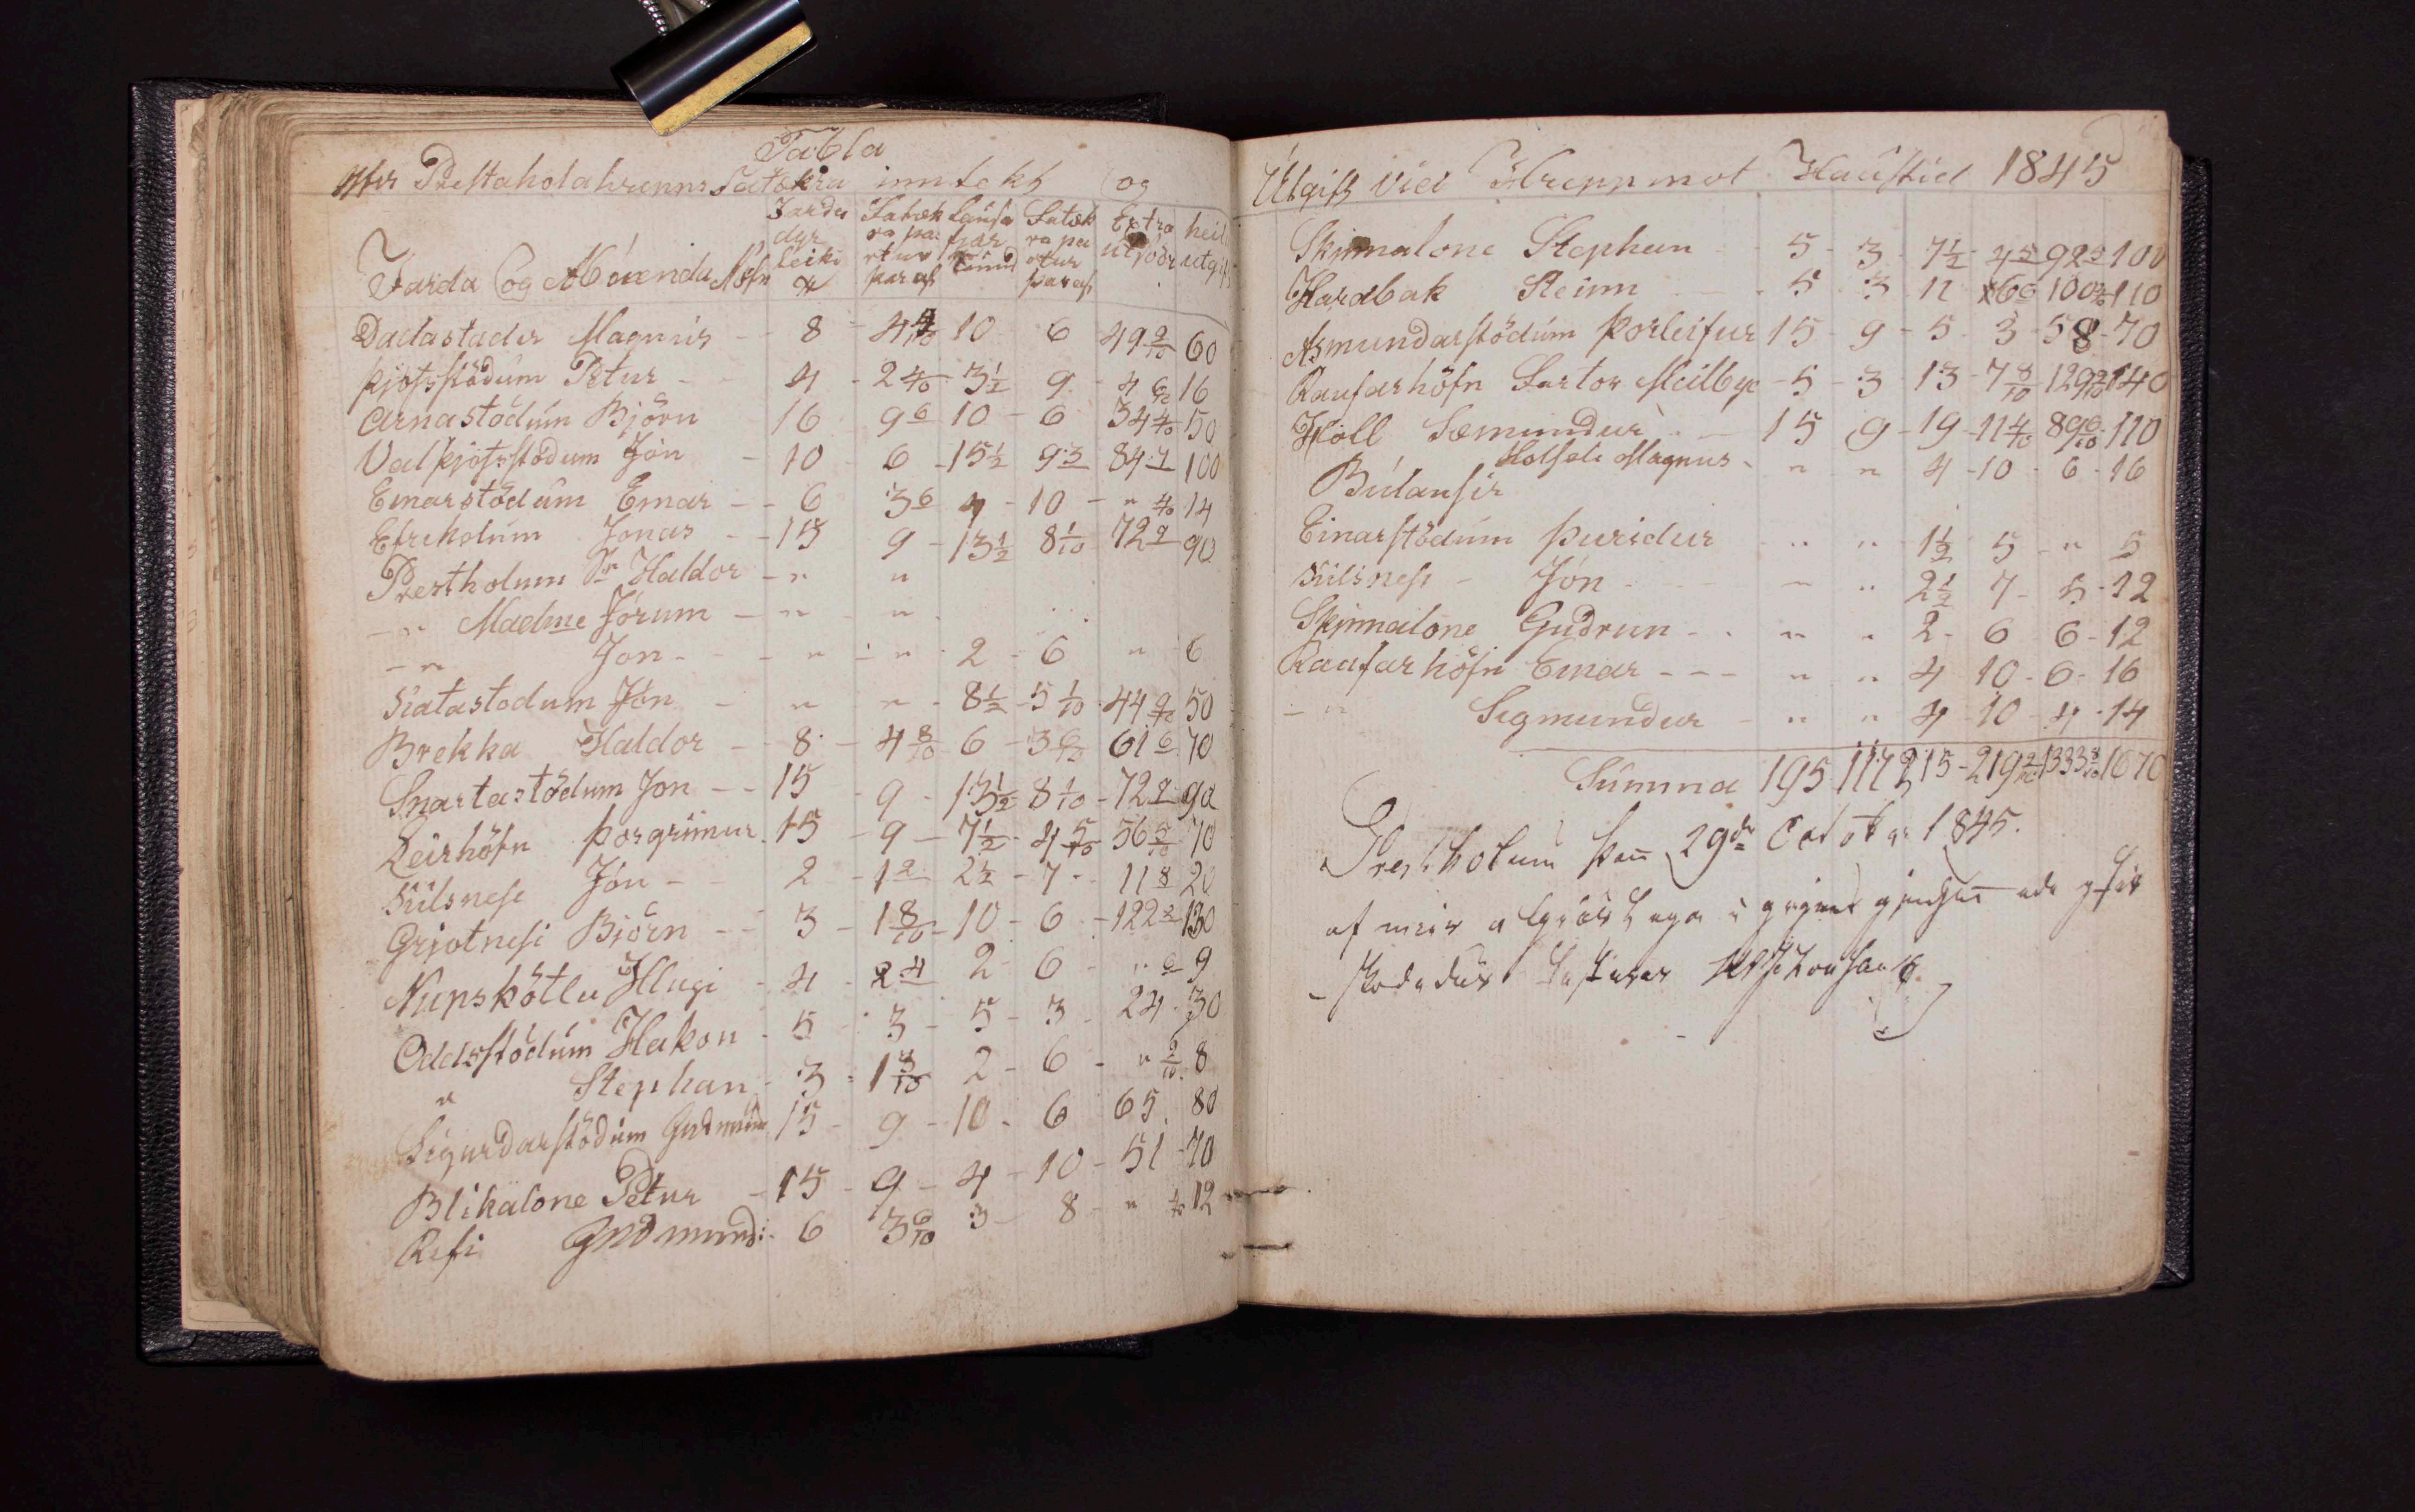 Tabla
yfir Prestaholahrepps Fatækra inntekt og
Jarda og Abúenda Nöfn
Jarda dyr leiki Fatæk ra pa rtur þaraf Lausa fjár tíund Fatæk ra pa rtur þaraf Extra útsvör heil utgift
Dadastader Magnús - 8 - 4 8/10 10 - 6 49 2/10 60
Þjofsstödum Petur - - 4 - 2 4/10 - 3 1/2 9 - 4 6/10 16
Arnastödum Björn 16 9 6 10 - 6 34 4/10 50
Valþjofsstödum Jón - 10 6 - 15 1/2 9 3 84 7 100
Einarstödum Einar - - 6 3 6 4 - 10 - " 4/10 14
Efrehólum Jonas - - 15 9 - 13 1/2 8 1/10 72 9 90
Prestholum Sr Haldor - " "
- " Madme Jórum - " - "
- " Jon - - - " - " 2 - 6 " 6
Katastodum Jón - " " - 8 1/2 - 5 1/10 44 9/10 50
Brekka Haldor - - 8 - 4 8/10 6 - 3 6/10 61 6 70
Snartastödum Jon - - 15 - 9 - 13 1/2 8 1/10 - 72 9 90
Leirhöfn Þorgrímur 15 - 9 - 7 1/2 - 4 5/10 56 5/10 70
Núlsnese Jón - - 2 - 1 2 2 1/2 - 7 - 11 8 20
Grjotnesi Björn - - 3 - 1 8/10 - 10 - 6 - 122 2 130
Nupskötlu Illugi - 4 - 2 4 2 - 6 - " 6 9
Oddsstödum Hakon - 5 - 3 - 5 - 3 - 24 30
" Stephan - 3 - 1 8/10 2 - 6 - " 2/10 8
Sigurdarstödum Gudmund 15 - 9 - 10 - 6 65 80
Blikalone Petur - 15 - 9 - 4 - 10 - 51 - 70
Rifi Gudmund: - 6 3 6/10 3 - 8 - " 4/10 12
Útgift vid Hreppmot Haustid 1845
Skinnalone Stephan - - 5 - 3 - 7 1/2 - 4 5 92 5 100
Hardbak Steinn - - 5 - 3 11 6 6 100 4/10 110
Asmundarstödum Þorleifur 15 - 9 - 5 - 3 - 58 - 70
Raufarhöfn Factor Meilbye - 5 - 3 - 13 - 7 8/10 129 2/10 140
Hóll Sæmundur - 15 9 - 19 - 11 4/10 89 6/10 110
Holseli Magnus - " " 4 - 10 - 6 - 16
Búlausir
Einarstödum Þuridur - " " 1 1/2 5 - " 5
Núlsnese - Jón - - - " " 2 1/2 7 - 5 - 12
Skinnalone Gudrun - - " " 2 - 6 6 - 12
Raufarhöfn Einar - - - " " 4 10 - 6 - 16
- " Sigmundur - " " 4 - 10 - 4 - 14
Summa 195 117 215 - 219 2/10 1333 8/10 1670
Prestholum þan 29da Octobr 1845.
af mier